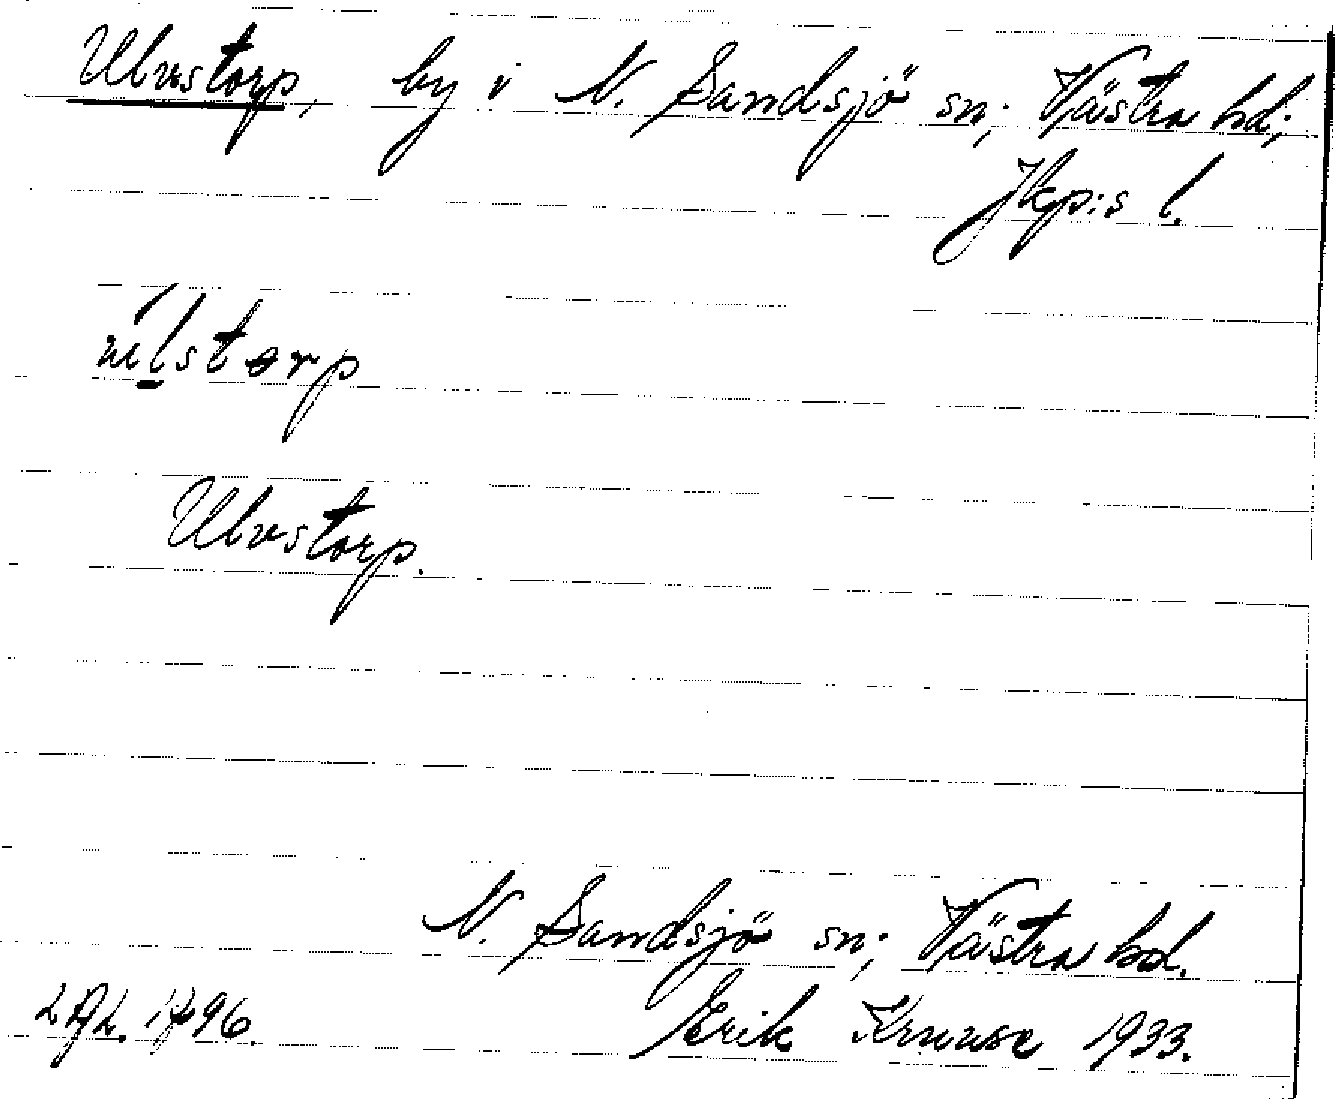 Ulvstorp, by i N. Sandsjö sn; Västra hd;
Jkp:s l.
ulstorp
Ulvstorp.
N. Sandsjö sn; Västra hd.
Erik Kruuse 1933.